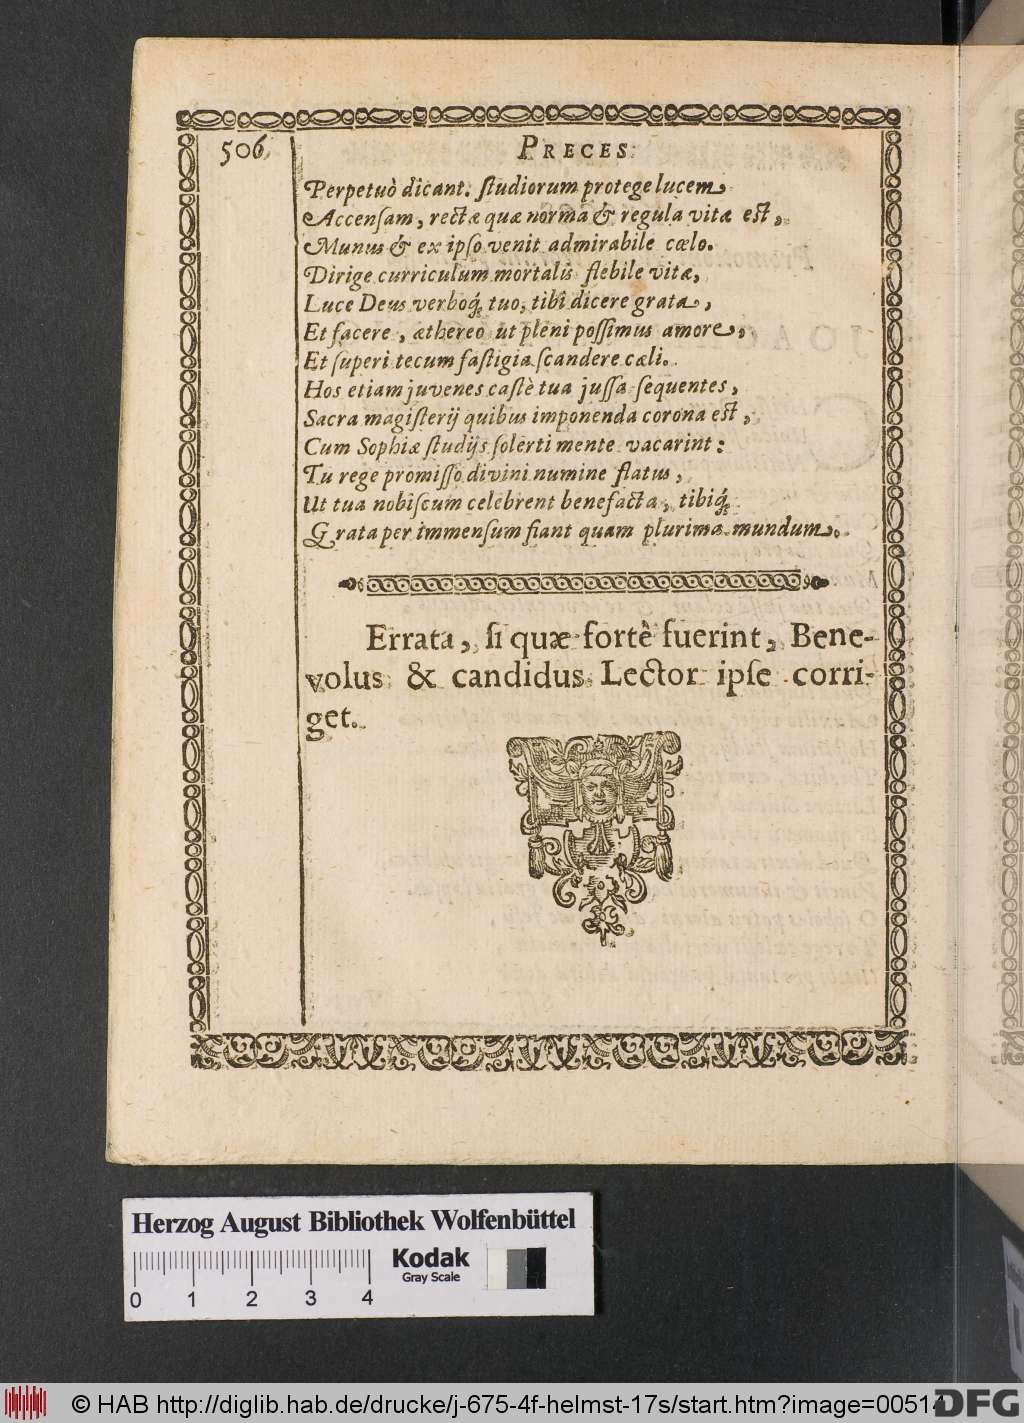 506.
PRECES.
Perpetuò dicant. ſtudiorum protege lucem
Accenſam, rectæ quæ norma & regula vitæ eſt,
Munus & ex ipſo venit admirabile cœlo.
Dirige curriculum mortalis flebile vitæ,
Luce Deus verboq́; tuo, tibi dicere grata,
Et facere, æthereo ut pleni poſſimus amore,
Et ſuperi tecum faſtigia ſcandere cæli.
Hos etiam juvenes caſtè tua juſſa ſequentes,
Sacra magiſterij quibus imponenda corona eſt,
Cum Sophiæ ſtudijs ſolerti mente vacarint:
Tu rege promiſſo divini numine flatus,
Ut tua nobiſcum celebrent benefacta, tibiq́;
Grata per immenſum fiant quam plurima mundum.
Errata, ſi quæ fortè fuerint, Bene-
volus & candidus Lector ipſe corri-
get.
Herzog August Bibliothek Wolfenbüttel
0 1 2 3 4
Kodak
Gray Scale
© HAB http://diglib.hab.de/drucke/j-675-4f-helmst-17s/start.htm?image=00514
DFG